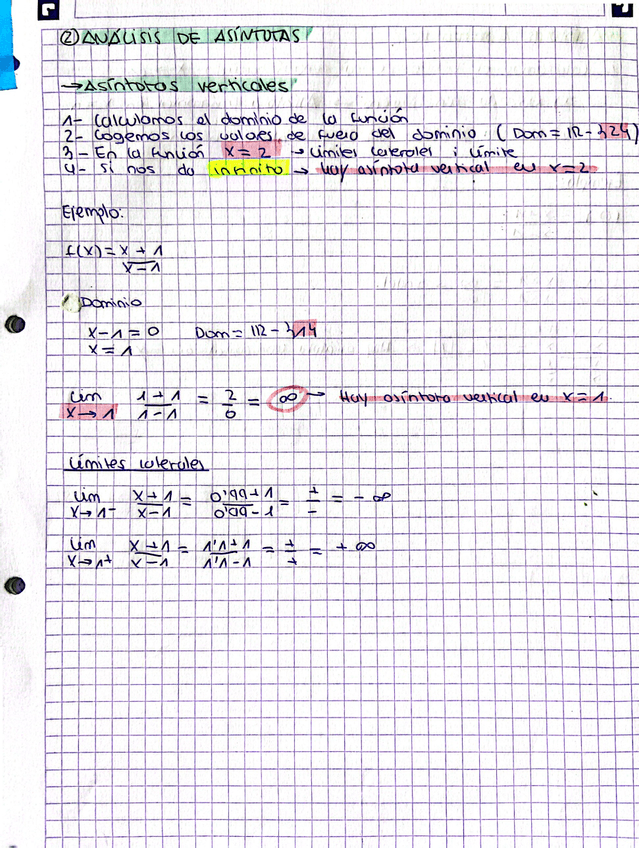 ② ANÁLISIS DE ASÍNTOTAS
→ Asíntotas verticales
1- Calculamos el dominio de la función
2- Cogemos los valores de fuera del dominio (Dom = IR - {2})
3- En la función x = 2 → Límites laterales i límite
4- Si nos da infinito → Hay asíntota vertical en x=2
Ejemplo:
f(x) = x + 1
x - 1
① Dominio
x - 1 = 0 Dom = IR - {1}
x = 1
Lim 1 + 1 = 2 = ∞ → Hay asíntota vertical en x = 1.
x → 1 1 - 1 0
Límites laterales
Lim x + 1 = 0'99 + 1 = + = - ∞
x → 1- x - 1 0'99 - 1 -
Lim x + 1 = 1'1 + 1 = + = + ∞
x → 1+ x - 1 1'1 - 1 +